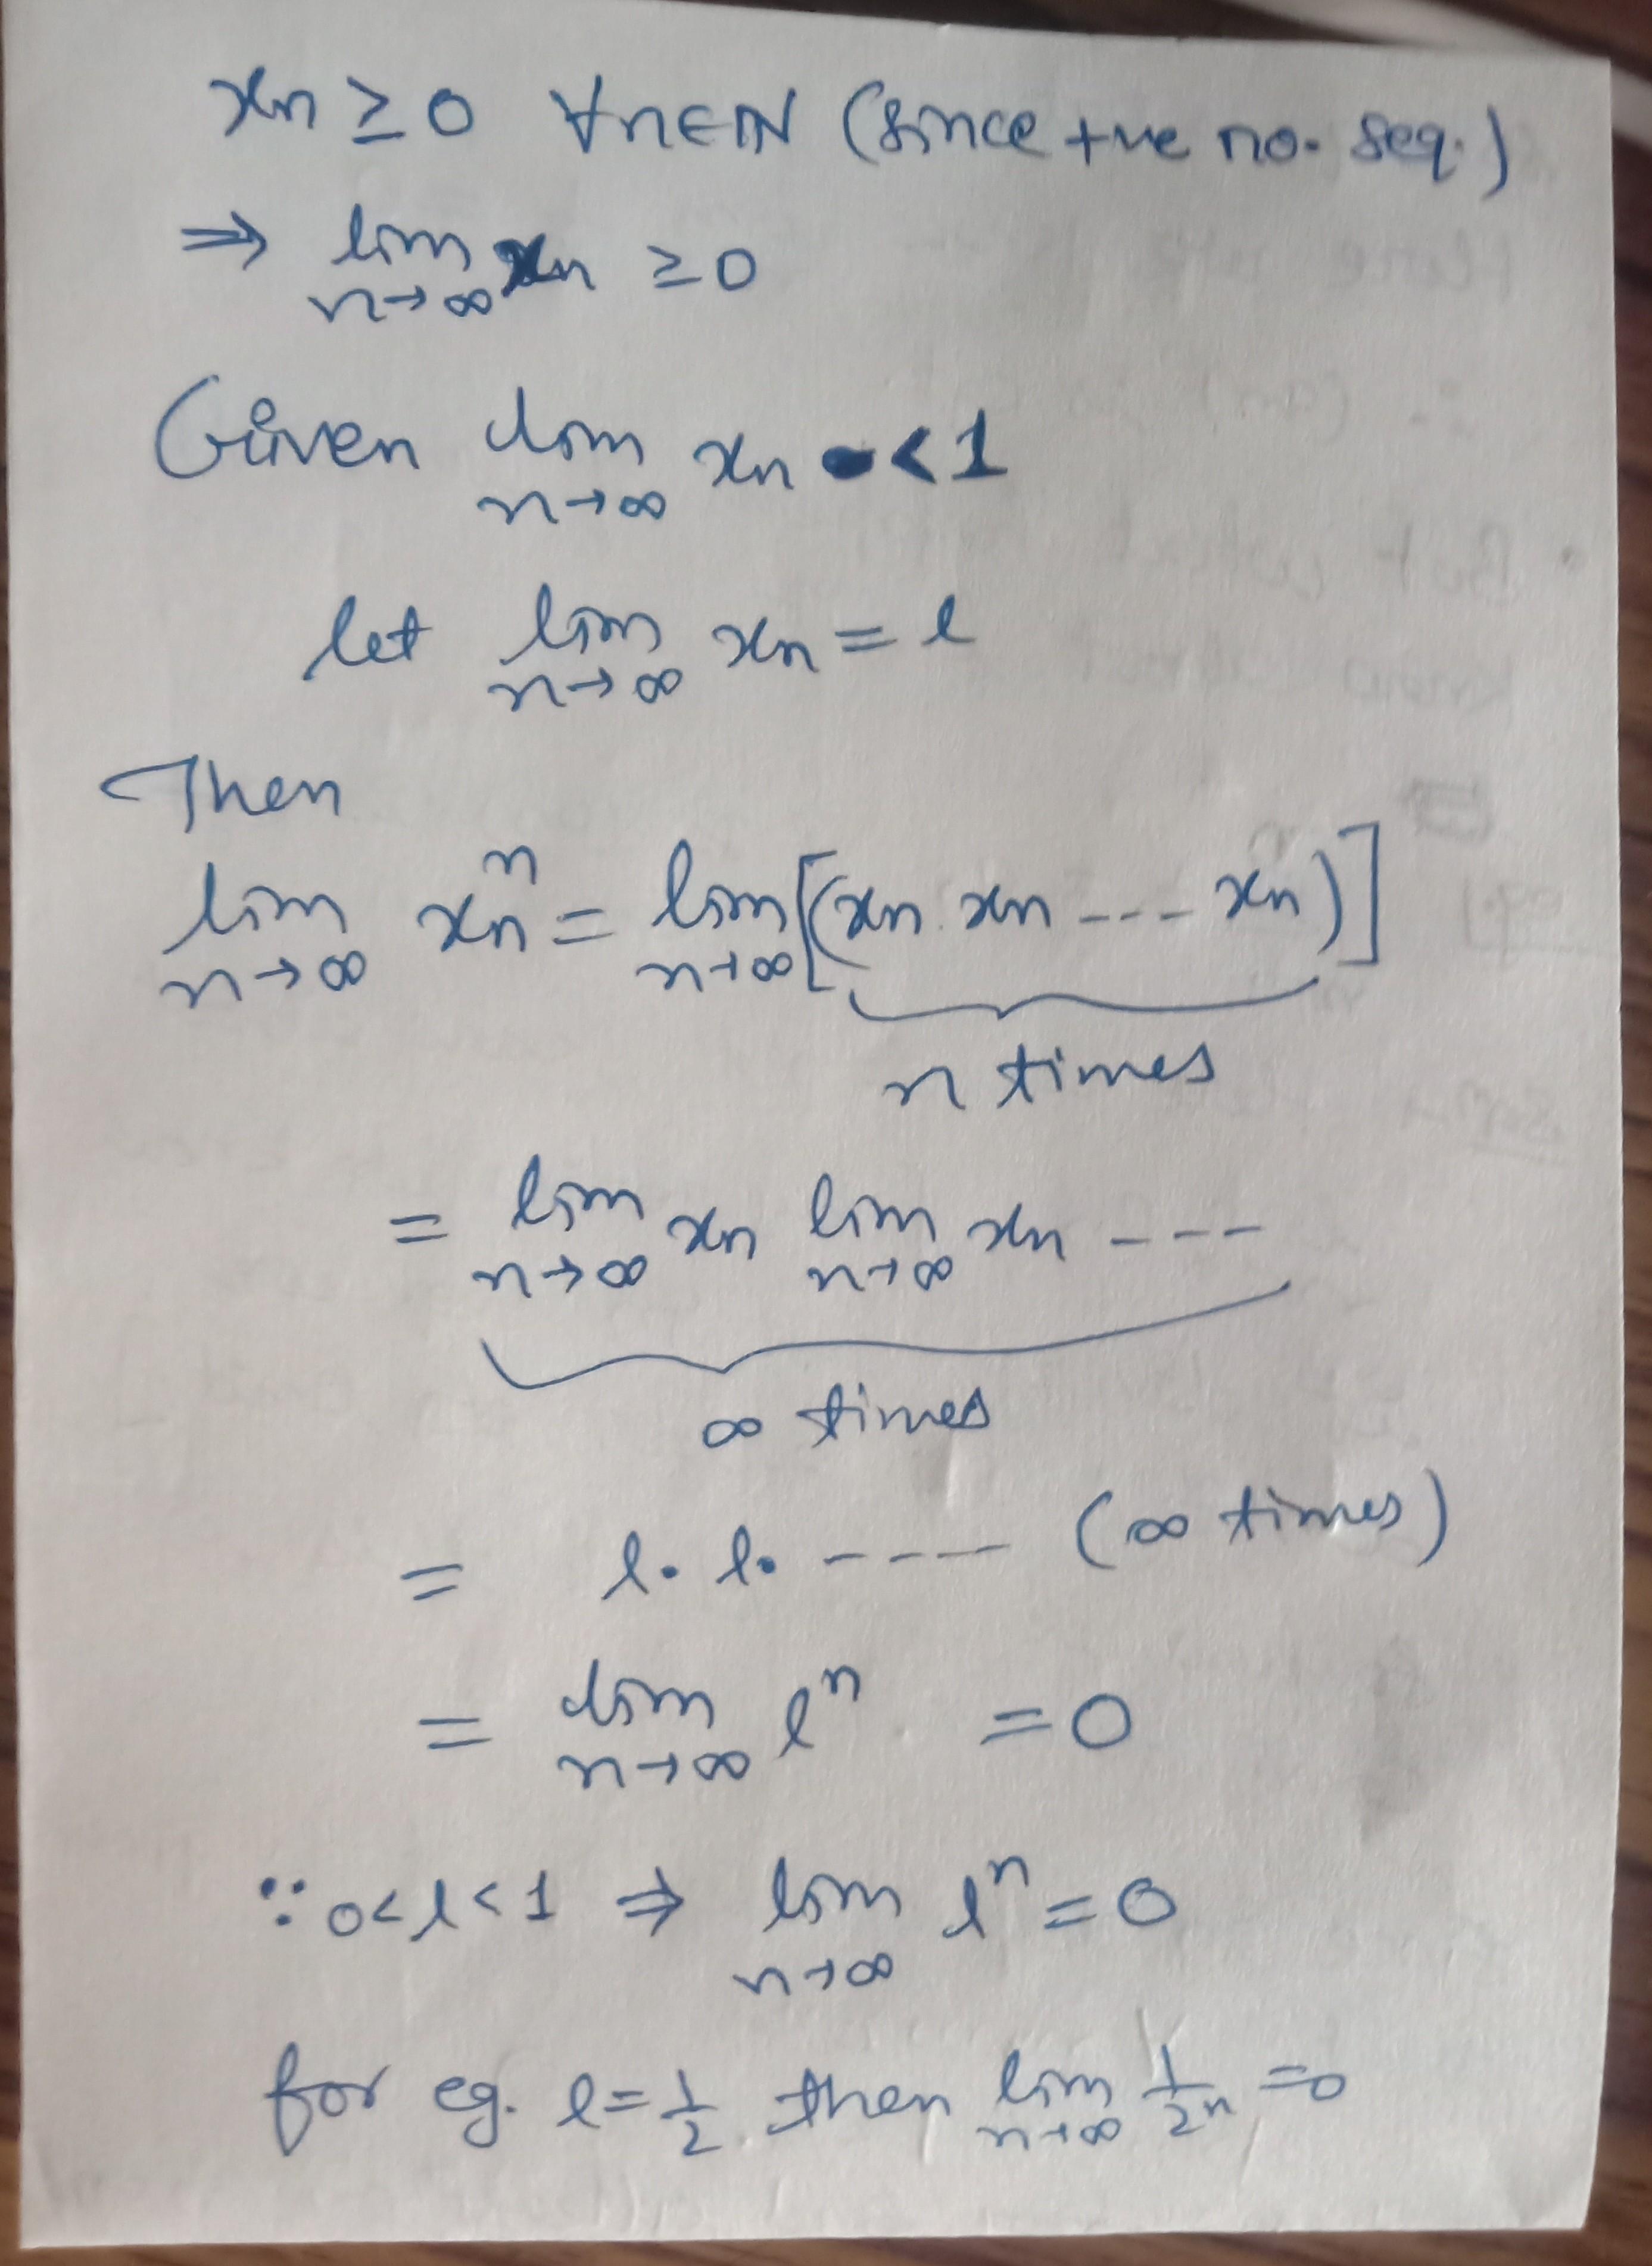 xn ≥ 0 ∀n∈ℕ (since +ve no. seq.)
⇒ lim xn ≥ 0
n→∞
Given lim xn < 1
n→∞
let lim xn = l
n→∞
Then
lim xn^n = lim [(xn. xn --- xn)]
n→∞ n→∞
n times
= lim xn lim xn ---
n→∞ n→∞
∞ times
= l. l. ---- (∞ times)
= lim l^n = 0
n→∞
∵ 0<l<1 ⇒ lim l^n = 0
n→∞
for eg. l = 1/2 then lim 1/2^n = 0
n→∞